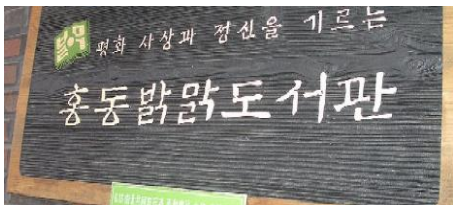 밝맑 평화 사상과 정신을 기르는
홍동밝맑도서관